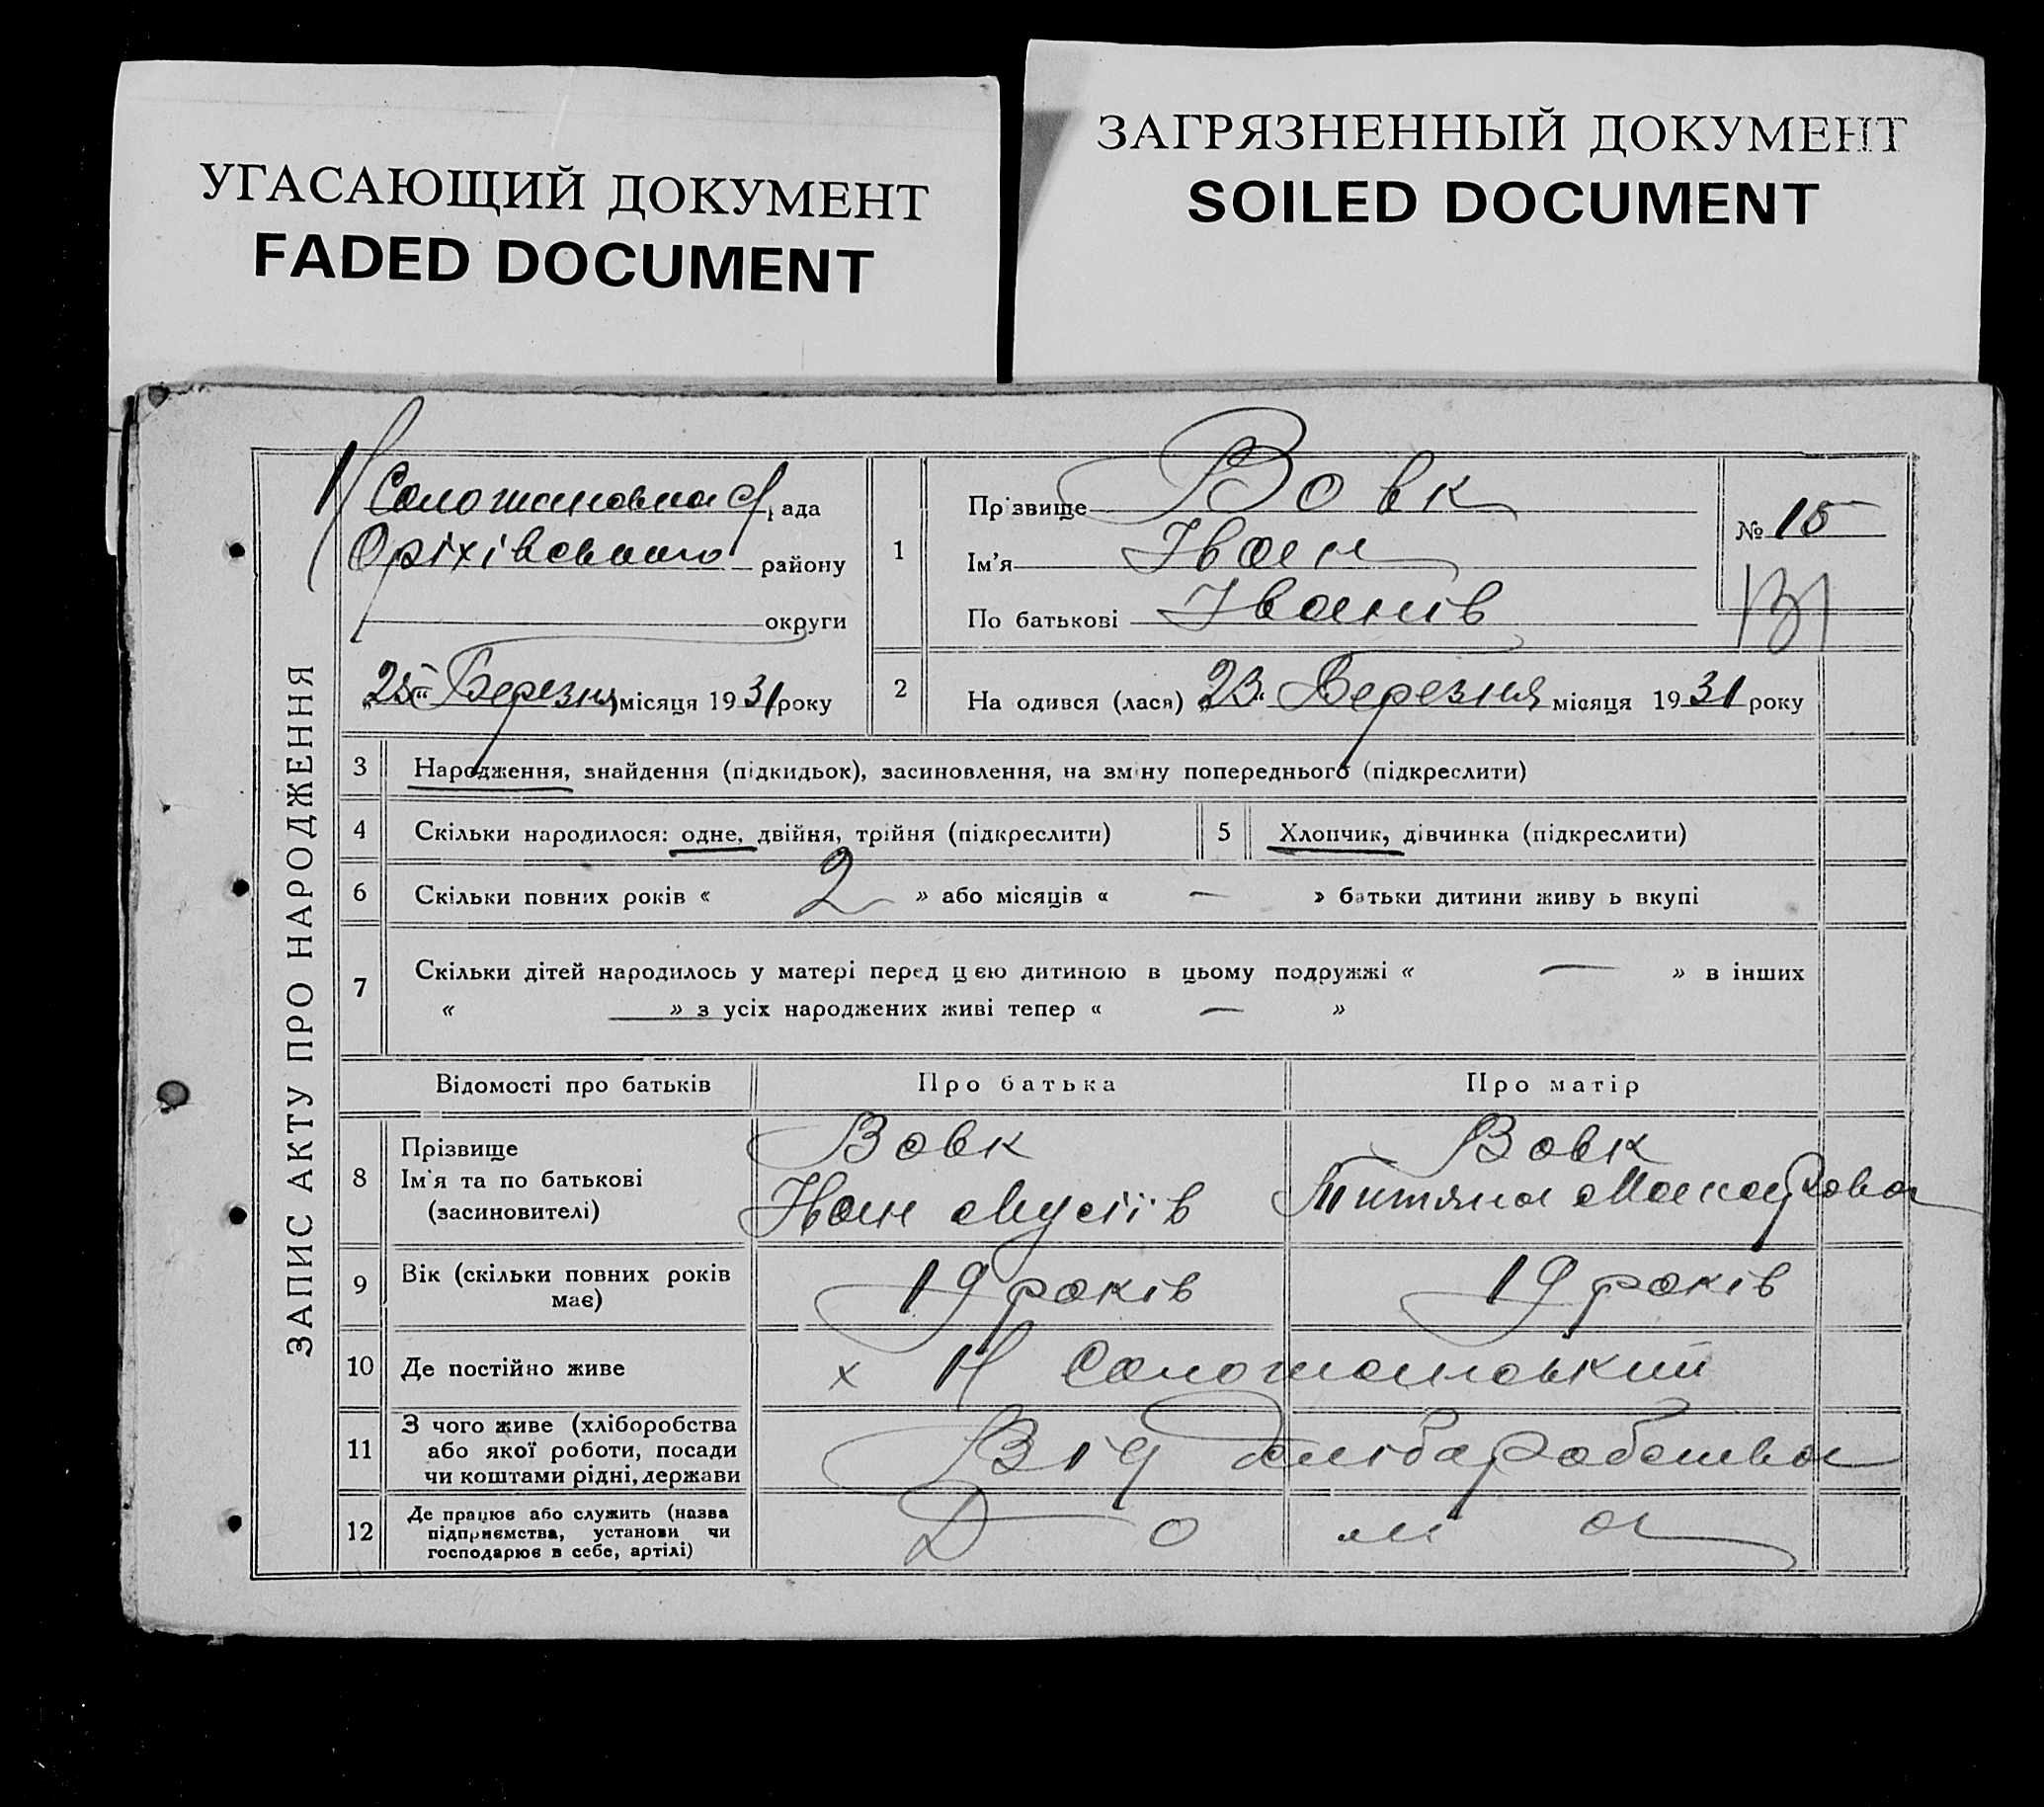 УГАСАЮЩИЙ ДОКУМЕНТ
FADED DOCUMENT
ЗАГРЯЗНЕННЫЙ ДОКУМЕНТ
SOILED DOCUMENT
ЗАПИС АКТУ ПРО НАРОДЖЕННЯ
ада
Оріхівського району
округи
"25" Березня місяця 1931 року
1
Прізвище Вовк
Ім'я Іван
По батькові Іванів
№ 15
2
На одився (лася) "23" Березня місяця 1931 року
3 Народження, знайдення (підкидьок), засиновлення, на зміну попереднього (підкреслити)
4 Скільки народилося: одне, двійня, трійня (підкреслити)
5 Хлопчик, дівчинка (підкреслити)
6 Скільки повних років « 2 » або місяців « — » батьки дитини живу ь вкупі
7 Скільки дітей народилось у матері перед цією дитиною в цьому подружжі « — » в інших
« — » з усіх народжених живі тепер « — »
Відомості про батьків Про батька Про матір
8 Прізвище
Ім'я та по батькові
(засиновителі)
Вовк
Іван Мусіїв
Вовк
9 Вік (скільки повних років
має)
19 років
19 років
10 Де постійно живе
х Н Солошанський
11 З чого живе (хліборобства
або якої роботи, посади
чи коштами рідні, держави
Від хлібаробства
12 Де працює або служить (назва
підприємства, установи чи
господарює в себе, артілі)
Дома